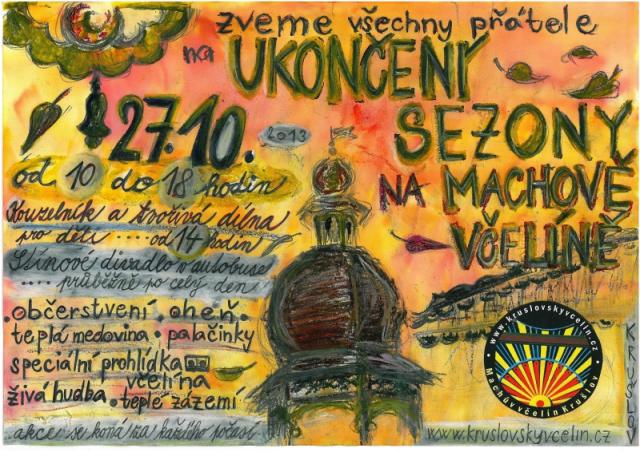 zveme všechny přátele
na UKONČENÍ
SEZONY
NA MACHOVĚ
VČELÍNĚ
27.10. 2013
od 10 do 18 hodin
Kouzelník a tvořivá dílna
pro děti .... od 14 hodin
Stínové divadlo v autobuse
.... průběžně po celý den
• občerstvení • oheň •
teplá medovina • palačinky
speciální prohlídka
včelína
živá hudba • teplé zázemí
akce se koná za každého počasí
www.kruslovskyvcelin.cz
Machův včelín Krušlov
KRUŠLOV
www.kruslovskyvcelin.cz